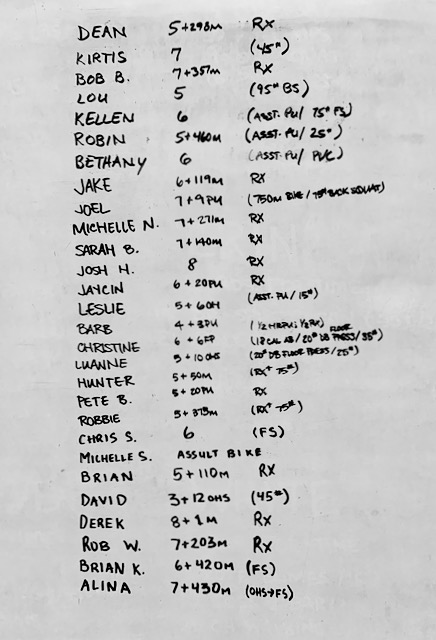 DEAN 5+298M RX
KIRTIS 7 (45#)
BOB B. 7+357M RX
LOU 5 (95# BS)
KELLEN 6 (ASST. PU/ 75# FS)
ROBIN 5+460M (ASST. PU/ 25#)
BETHANY 6 (ASST. PU/ PVC)
JAKE 6+119M RX
JOEL 7+9PU (750M BIKE / 75# BACK SQUAT)
MICHELLE N. 7+271M RX
SARAH B. 7+140M RX
JOSH H. 8 RX
JAYCIN 6+20PU RX
LESLIE 5+6OH (ASST. PU/15#)
BARB 4+8PU (1/2 HRPU; 1/2 RX)
CHRISTINE 6+6FP (18 CAL AB/20# DB FLOOR PRESS/35#)
LUANNE 5+10OHS (20# DB FLOOR PRESS/25#)
HUNTER 5+50M (RX+ 75#)
PETE B. 5+20PU RX
ROBBIE 5+375M (RX+ 75#)
CHRIS S. 6 (FS)
MICHELLE S. ASSULT BIKE
BRIAN 5+110M RX
DAVID 3+12OHS (45#)
DEREK 8+1M RX
ROB W. 7+203M RX
BRIAN K. 6+420M (FS)
ALINA 7+430M (OHS→FS)